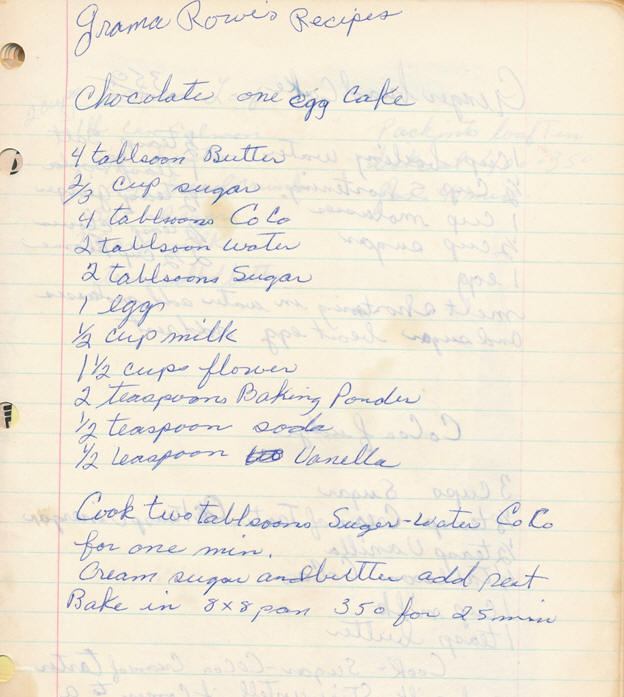 Grama Rowe's Recipes
Chocolate one egg Cake
4 tablsoon Butter
2/3 cup sugar
4 tablsoons CoCo
2 tablsoon water
2 tablsoons Sugar
1 egg
1/2 cup milk
1 1/2 cups flower
2 teaspoons Baking Ponder
1/2 teaspoon soda
1/2 teaspoon Vanilla
Cook two tablsoons Suger-water CoCo
for one min.
Cream sugar and butter add rest
Bake in 8x8 pan 350 for 25 min